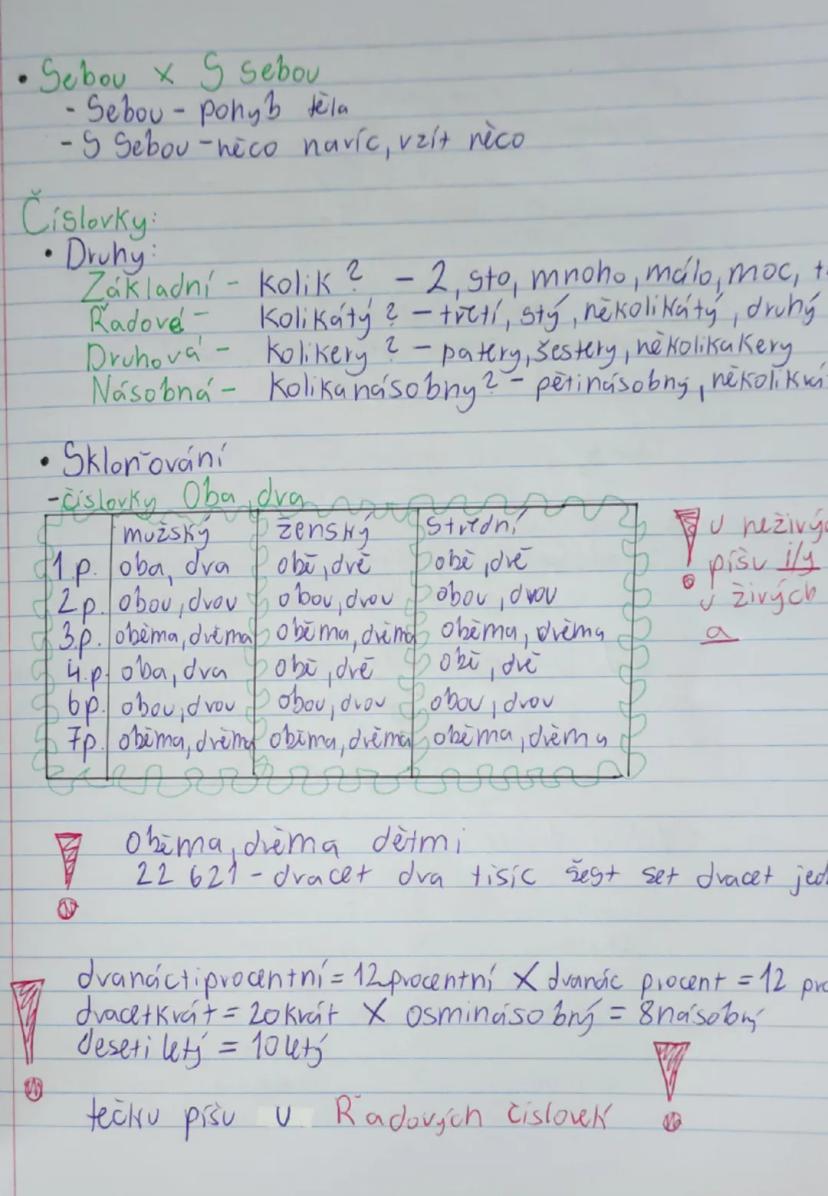 • Sebou x S sebou
- Sebou - pohyb těla
- S Sebou - něco navíc, vzít něco
Číslovky:
• Druhy:
Základní - Kolik? - 2, sto, mnoho, málo, moc, t
Řadové - Kolikátý? - třetí, stý, několikátý, druhý
Druhová - Kolikery? - patery, šestery, několikakery
Násobná - Kolikanásobny? - pětinásobný, několika
• Skloňování
- číslovky Oba, dva
mužský ženský střední
1.p. oba, dva obě, dvě obě, dvě
2p. obou, dvou obou, dvou obou, dvou
3p. oběma, dvěma oběma, dvěma oběma, dvěma
4.p. oba, dva obě, dvě obě, dvě
6p. obou, dvou obou, dvou obou, dvou
7p. oběma, dvěma oběma, dvěma oběma, dvěma
! U neživý
píšu i/y
u živých
a
! Oběma, dvěma dětmi
22 621 - dvacet dva tisíc šest set dvacet jed
! dvanáctiprocentní = 12procentní X dvanác procent = 12 pro
dvacetkrát = 20krát X osminásobný = 8násobný
desetiletý = 10letý !
tečku píšu u Řadových číslovek